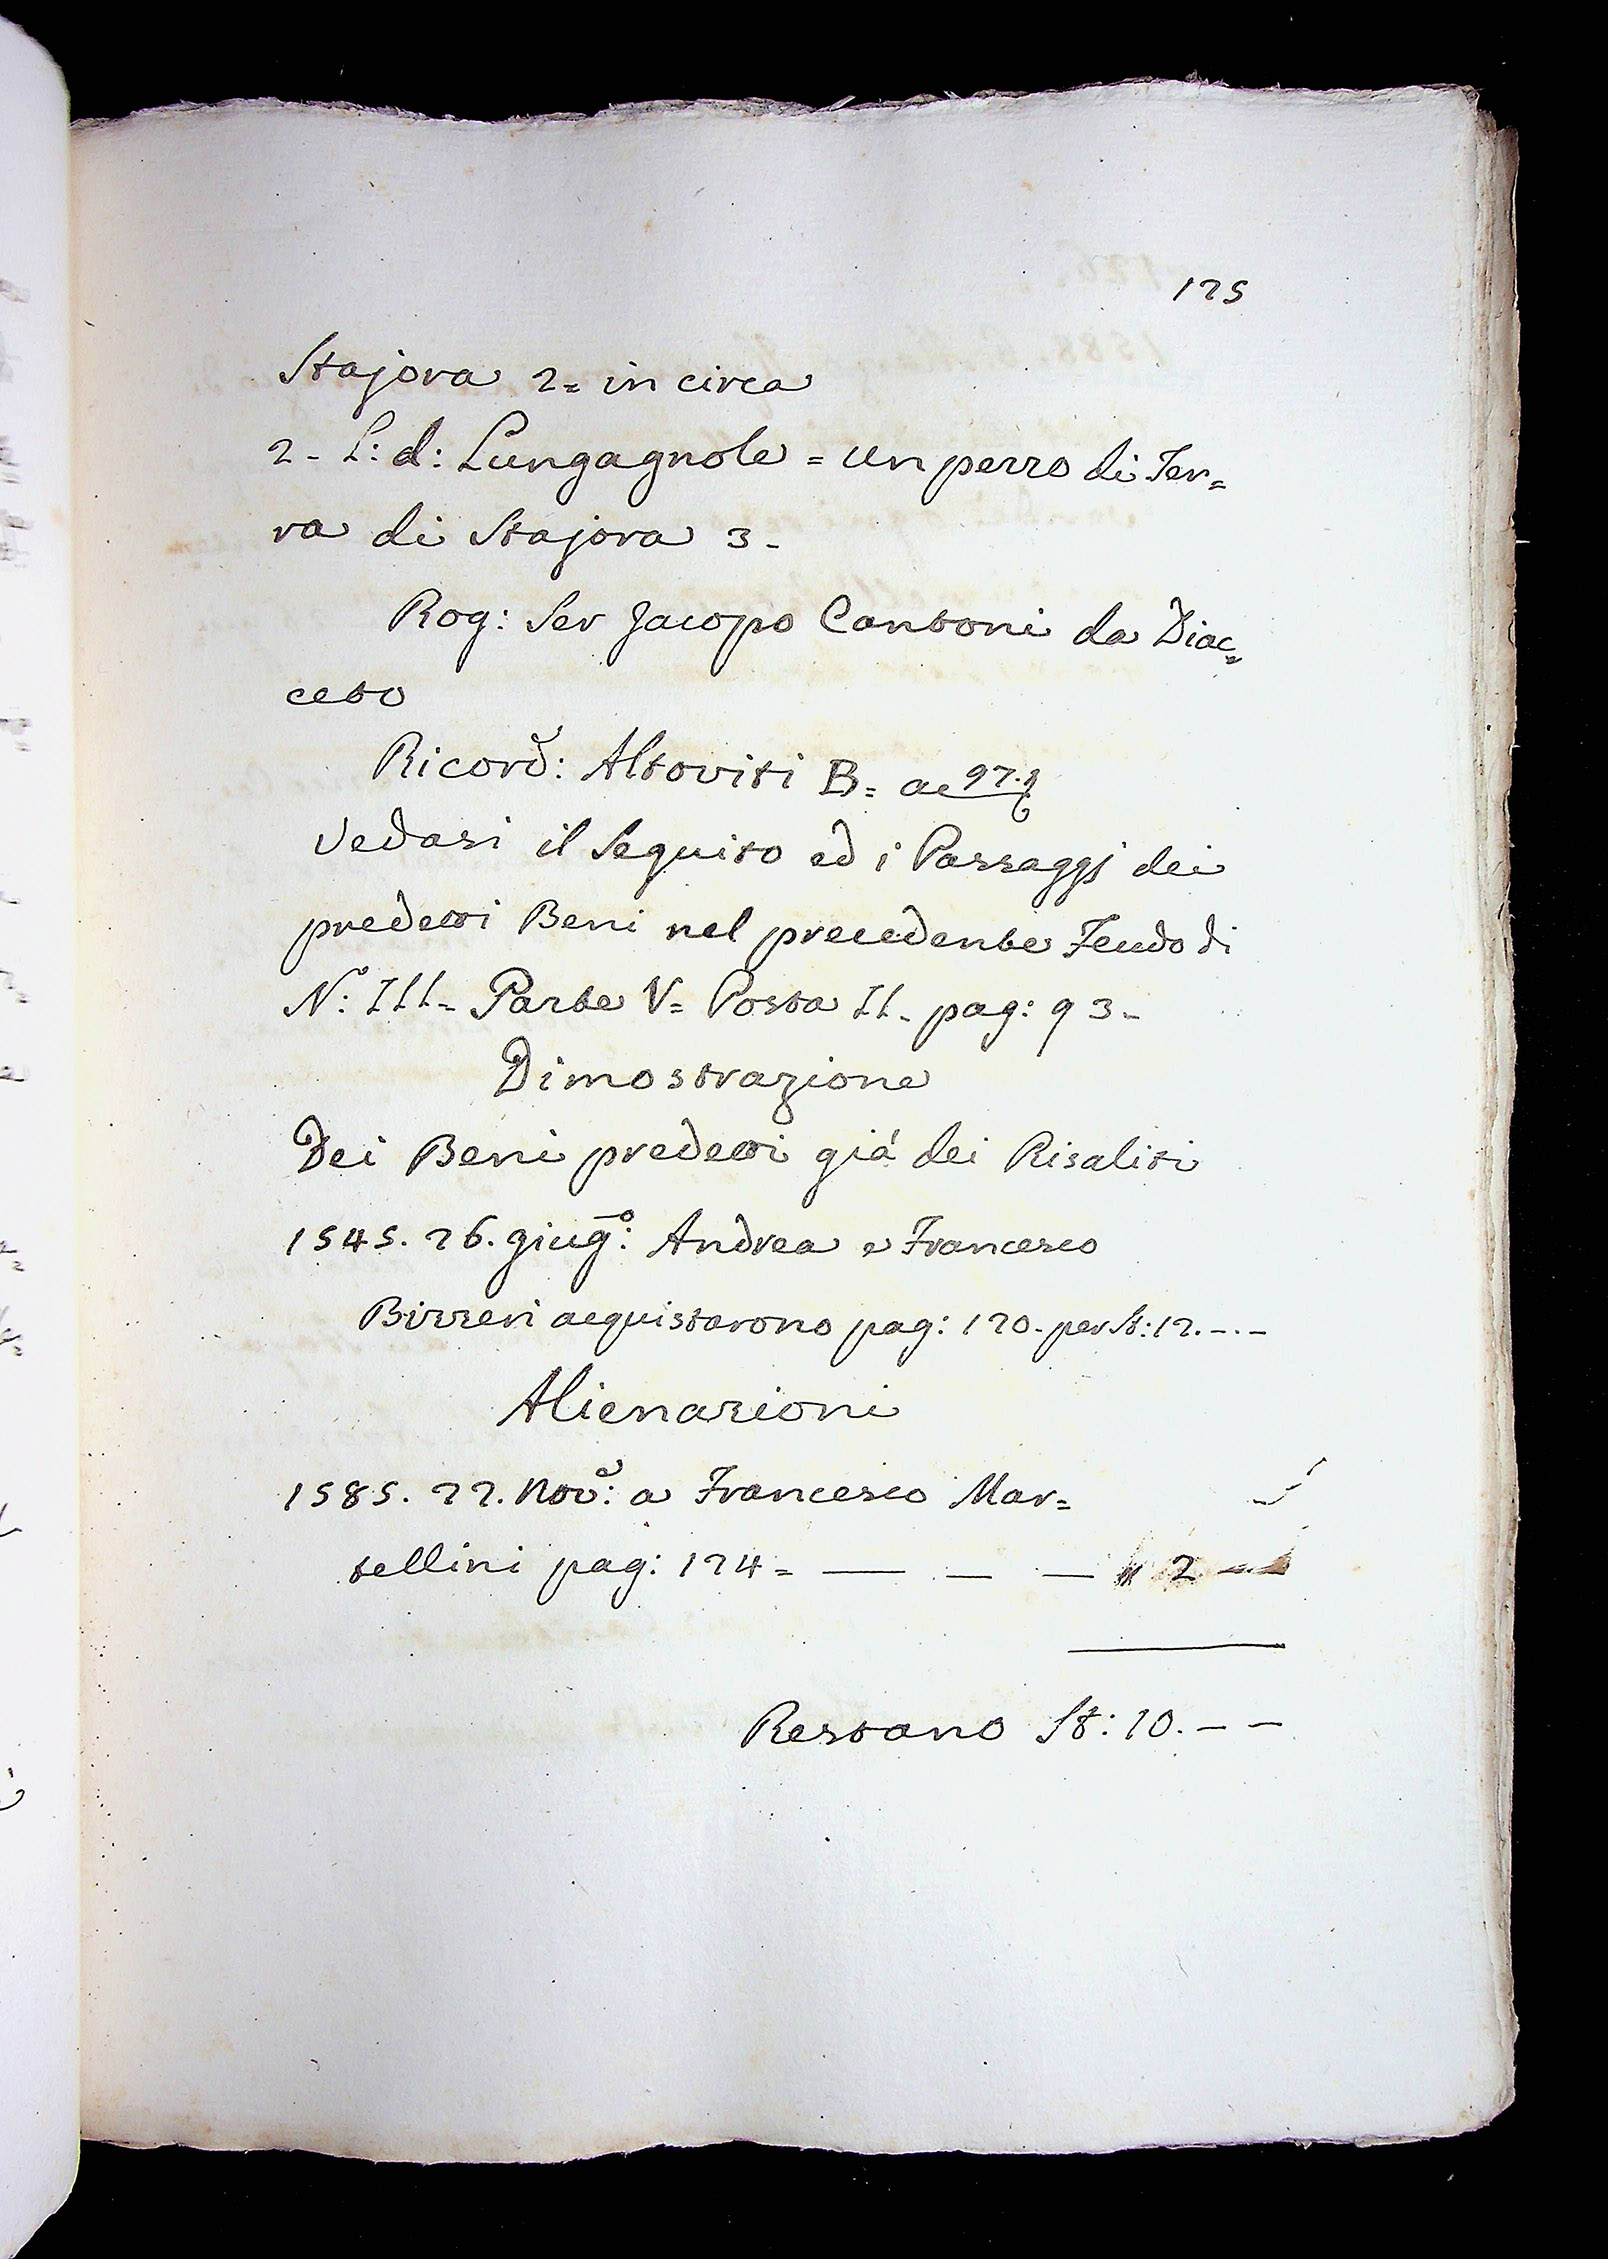 125
Stajora 2= in circa
2- L: d: Lungagnole = un pezzo di Ter=
ra di Stajora 3-
Rog: Ser Jacopo Cantoni da Diac=
ceto
Ricord: Altoviti B= a 97.
Vedasi il Seguito ed i Passaggj dei
predetti Beni nel precedente Feudo di
N: III- Parte V= Posta II- pag: 93-
Dimostrazione
Dei Beni predetti giá dei Risaliti
1545. 26. giug:o Andrea e Francesco
Bizzeri acquistarono pag: 120- per St: 12.-.-
Alienazioni
1585. 22. Nov: a Francesco Mar=
tellini pag: 124= — — — " 2 --
Restano St: 10.- -